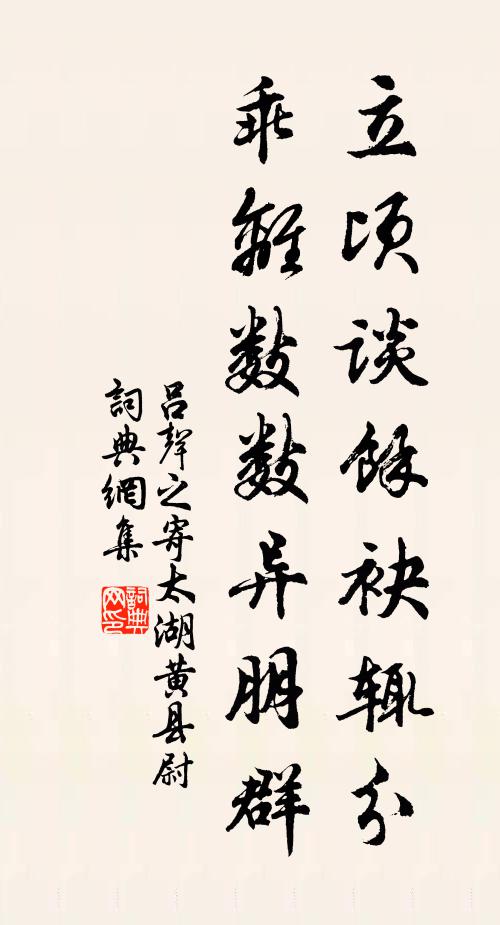 立顷谈馀袂辄分
乖離数数异朋群
吕聲之寄太湖黄县尉
詞典網集
詞典網印